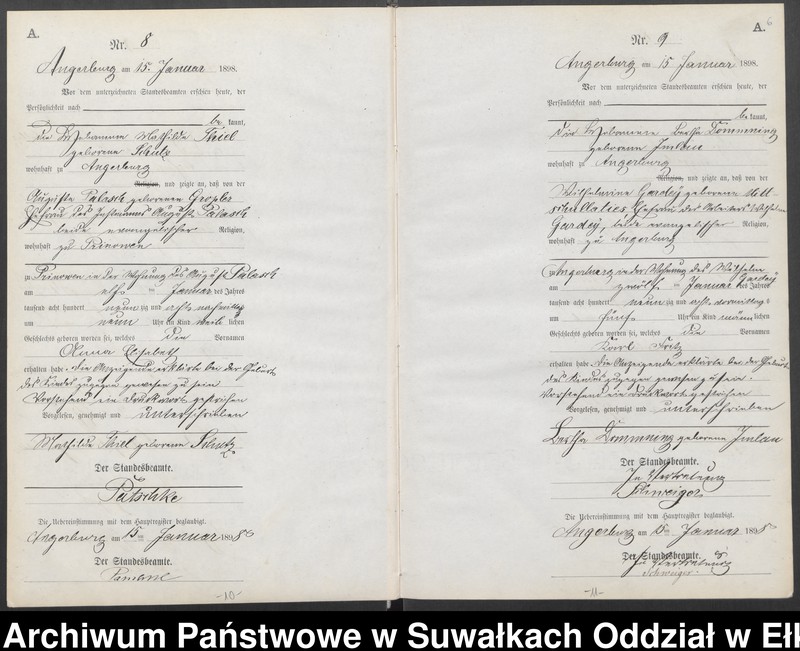 A.
Nr. 8
Angerburg am 15. Januar 1898.
Vor dem unterzeichneten Standesbeamten erschien heute, der
Persönlichkeit nach
be kannt,
die Hebamme Mathilde Thiel
geborene Schulz
wohnhaft zu Angerburg
Religion, und zeigte an, daß von der
Auguste Palasch geborenen
Ehefrau des August Palasch
beide evangelischer Religion,
wohnhaft zu Prinowen
zu Prinowen in der Wohnung des August Palasch
am elften Januar des Jahres
tausend acht hundert neunzig und acht nachmittags
um neun Uhr ein Kind weiblichen
Geschlechts geboren worden sei, welches die Vornamen
Anna Elisabeth
erhalten habe. Die Anzeigende erklärte bei der Geburt
des Kindes zugegen gewesen zu sein
Vorstehend ein Druckwort gestrichen
Vorgelesen, genehmigt und unterschrieben
Mathilde Thiel geborene Schulz
Der Standesbeamte.
Die Uebereinstimmung mit dem Hauptregister beglaubigt.
Angerburg am 15ten Januar 1898
Der Standesbeamte.
-10-
A. 6
Nr. 9
Angerburg am 15 Januar 1898.
Vor dem unterzeichneten Standesbeamten erschien heute, der
Persönlichkeit nach
be kannt,
die Hebamme Bertha Dommning
geborene Imlau
wohnhaft zu Angerburg
Religion, und zeigte an, daß von der
Wilhelmine Gardey geborene
Ehefrau des Arbeiters Wilhelm
Gardey, beide evangelischer Religion,
wohnhaft zu Angerburg
Angerburg in der Wohnung des Wilhelm Gardey
am zwölften Januar des Jahres
tausend acht hundert neunzig und acht vormittags
um fünf Uhr ein Kind männlichen
Geschlechts geboren worden sei, welches die Vornamen
Karl Fritz
erhalten habe. Die Anzeigende erklärte bei der Geburt
des Kindes zugegen gewesen zu sein.
Vorstehend ein Druckwort gestrichen
Vorgelesen, genehmigt und unterschrieben
Bertha Dommning geborene Imlau
Der Standesbeamte.
In Vertretung
Schweiger
Die Uebereinstimmung mit dem Hauptregister beglaubigt.
Angerburg am 15ten Januar 1898
Der Standesbeamte.
In Vertretung
Schweiger.
-11-
Archiwum Państwowe w Suwałkach Oddział w Ełk